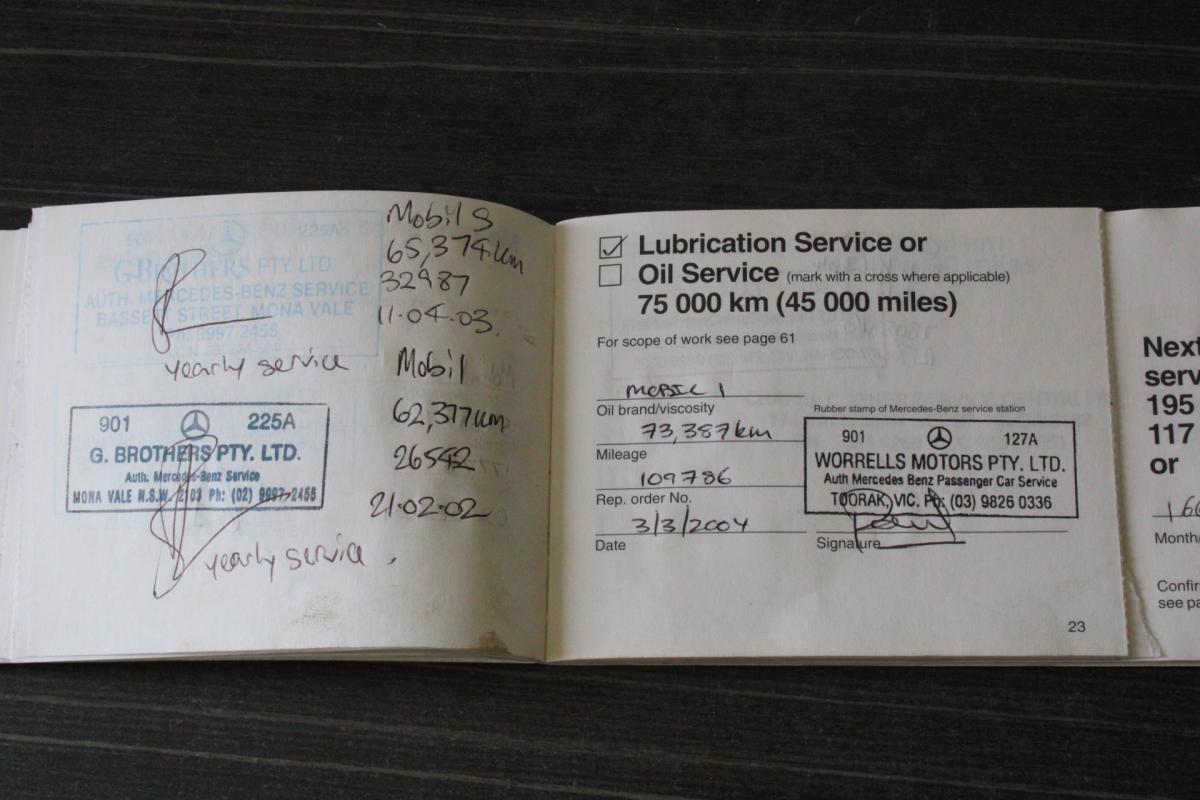 225A
G. BROTHERS PTY. LTD
AUTH. MERCEDES-BENZ SERVICE
BASSETT STREET, MONA VALE
PH: 9997 2455
yearly service
Mobil S
65,374km
32987
11.04.03.
901 225A
G. BROTHERS PTY. LTD.
Auth. Mercedes-Benz Service
MONA VALE N.S.W. 2103 Ph: (02) 9997-2455
yearly service.
Mobil
62,377km
26542
21.02.02
Lubrication Service or
Oil Service (mark with a cross where applicable)
75 000 km (45 000 miles)
For scope of work see page 61
MOBIL 1
Oil brand/viscosity
73,387km
Mileage
109786
Rep. order No.
3/3/2004
Date
Rubber stamp of Mercedes-Benz service station
901 127A
WORRELLS MOTORS PTY. LTD.
Auth Mercedes Benz Passenger Car Service
TOORAK, VIC. Ph: (03) 9826 0336
Signature
23
Next
serv
195
117
or
Month/
Confir
see pa